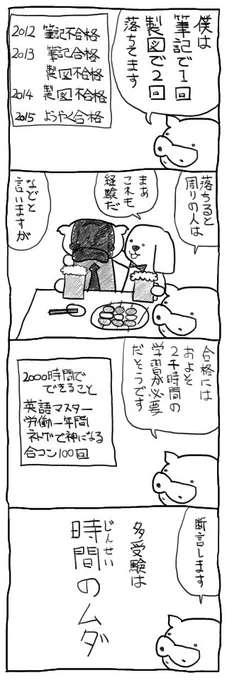 僕は
筆記で1回
製図で2回
落ちてます
2012 筆記不合格
2013 筆記合格
製図不合格
2014 製図不合格
2015 ようやく合格
落ちると
周りの人は
まぁ
これも
経験だ
などと
言いますが
合格には
およそ
2千時間の
学習が必要
だそうです
2000時間で
できること
英語マスター
労働一年間
ネトゲで神になる
合コン100回
断言します
多受験は
時間のムダ
じんせい